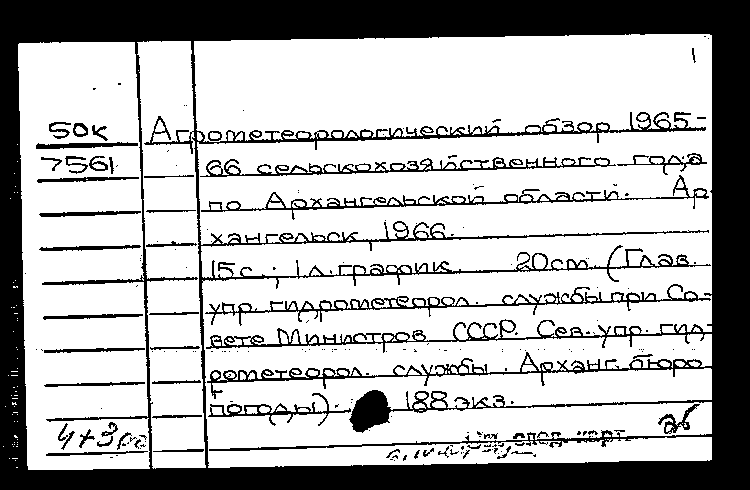 1
50к Агрометеорологический обзор 1965-
7561 66 сельскохозяйственного года
по Архангельской области. Ар-
хангельск, 1966.
15с.; 1л.график. 20cm (Глав.
упр. гидрометеорол. службы при Со-
вете Министров СССР. Сев. упр. гид-
рометеорол. службы. Арханг. бюро
погоды). 188 экз.
См. след. карт.